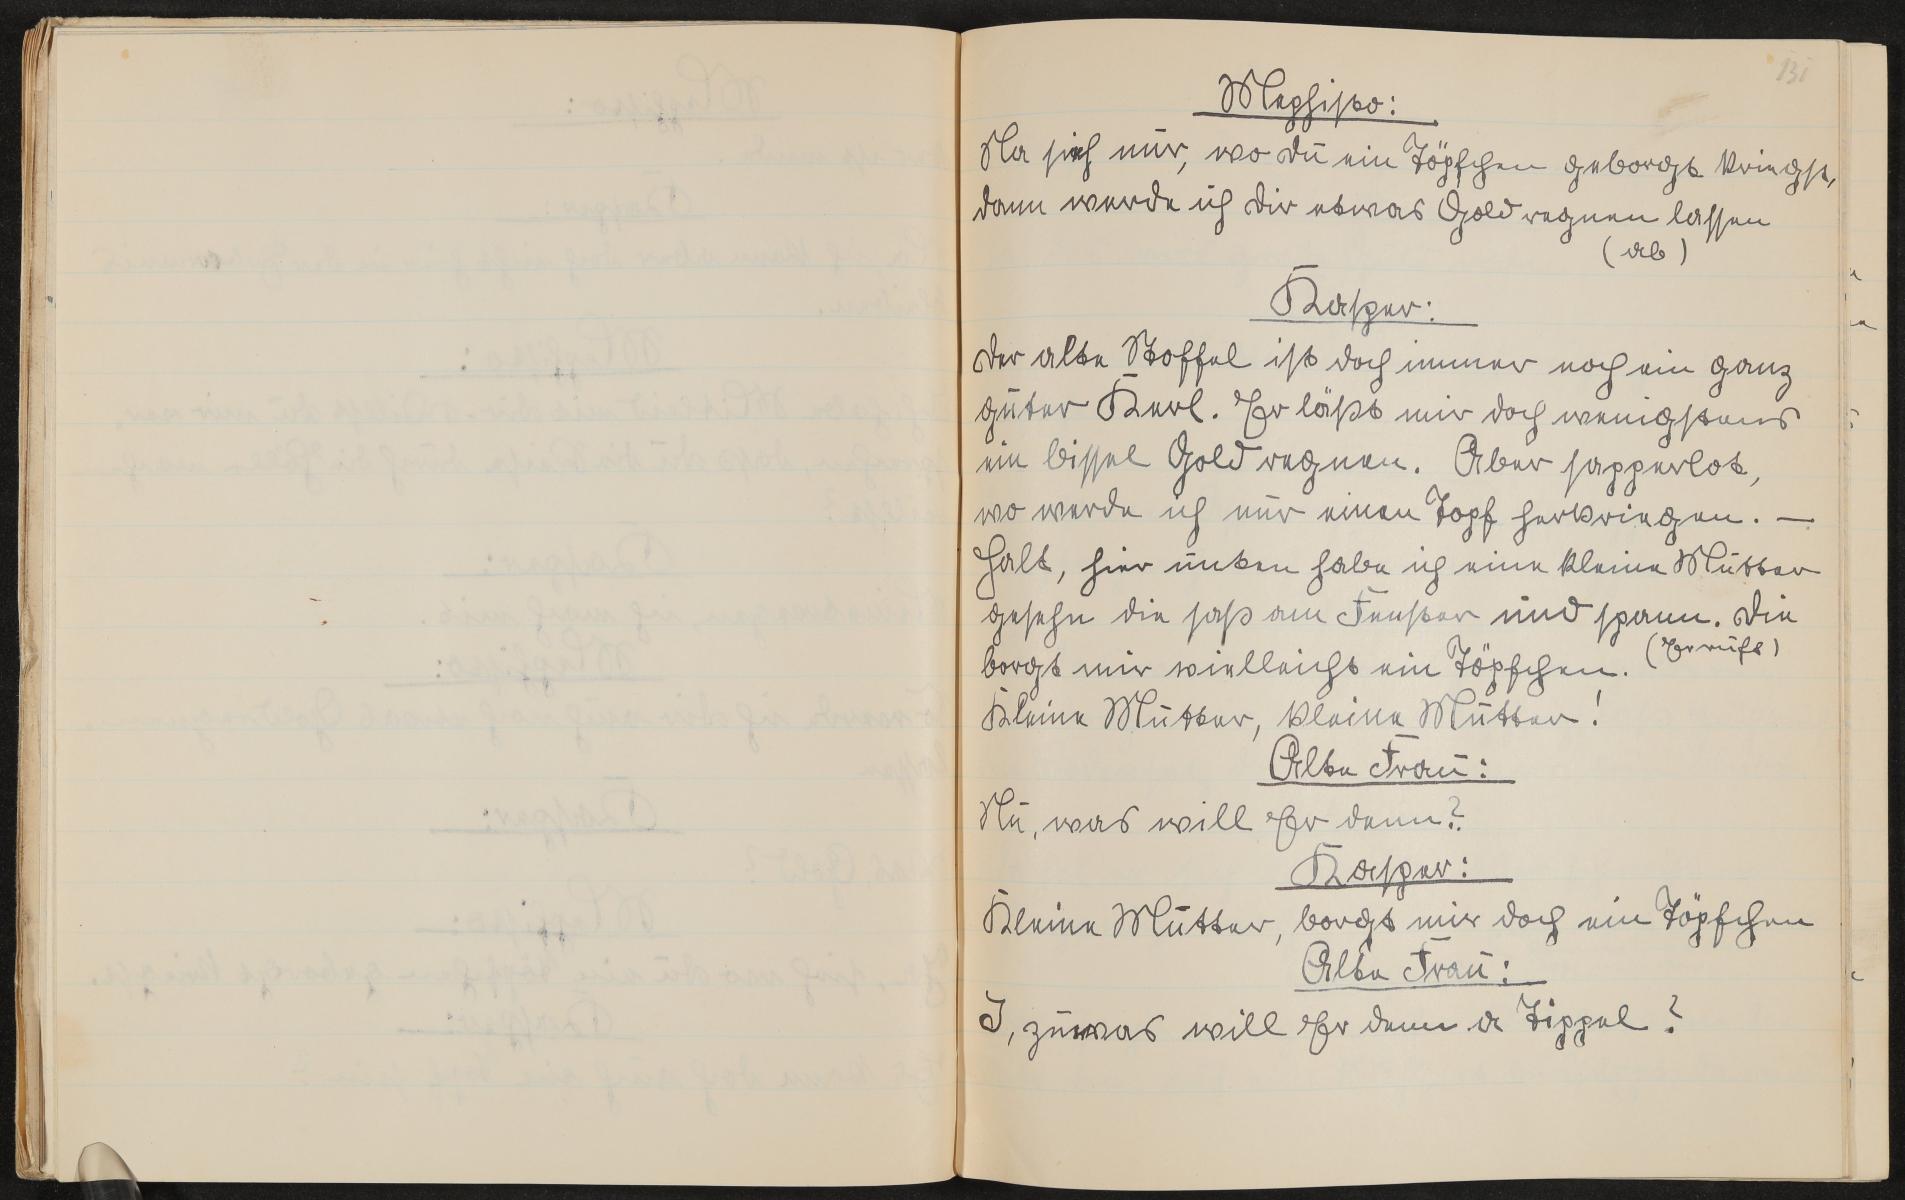 131
Mephisto:
Na sieh nur, wo du ein Töpfchen geborgt kriegst,
dann werde ich dir etwas Gold regnen lassen
(ab)
Kasper:
Der alte Stoffel ist doch immer noch ein ganz
guter Kerl. Er läßt mir doch wenigstens
ein bissel Gold regnen. Aber sapperlot,
wo werde ich nur einen Topf herkriegen. —
Halt, hier unten habe ich eine kleine Mutter
gesehn die saß am Fenster und spann. Die
borgt mir vielleicht ein Töpfchen. (Er ruft)
Kleine Mutter, kleine Mutter!
Alte Frau:
Nu, was will Er denn?
Kasper:
Kleine Mutter, borgt mir doch ein Töpfchen
Alte Frau:
I, zuwas will Er denn a Tippel?